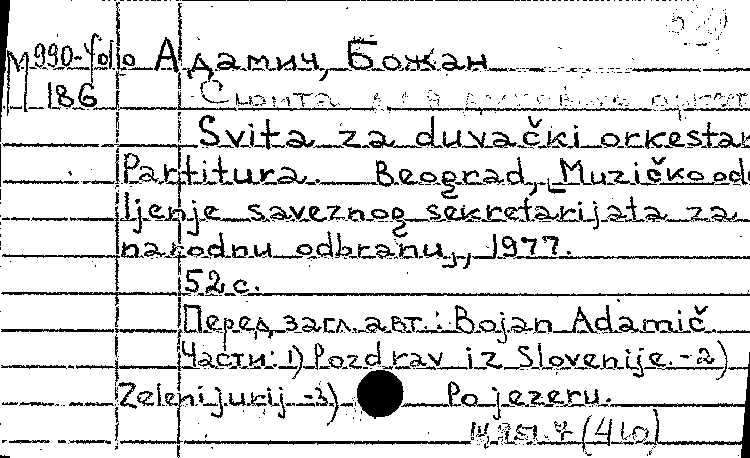 М 990-Folio Адамич, Божан
186 Сюита для духовых оркест
Svita za duvački orkestar
Partitura. Beograd, Muzičko ode
ljenje saveznog sekretarijata za
narodnu odbranu, 1977.
52 с.
Перед загл. авт.: Bojan Adamič
Части: 1) Pozdrav iz Slovenije. -2)
Zeleni jurij -3) Po jezeru.
(410)